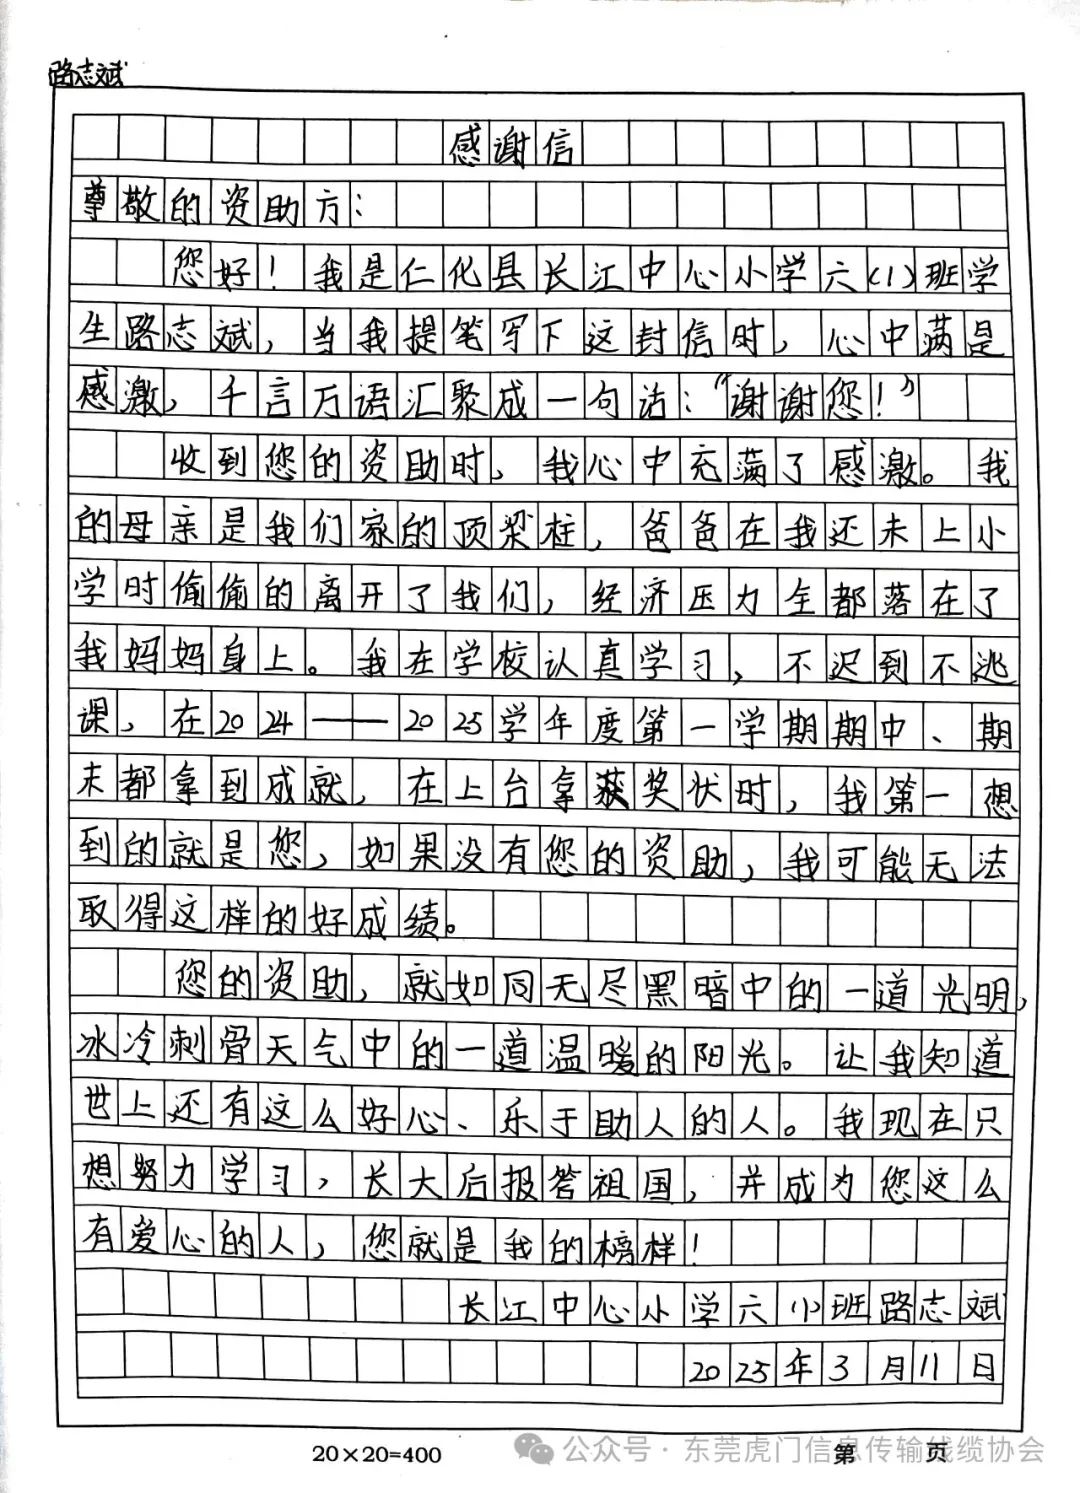 路志斌
感谢信
尊敬的资助方：
您好！我是仁化县长江中心小学六(1)班学
生路志斌，当我提笔写下这封信时，心中满是
感激，千言万语汇聚成一句话："谢谢您！"
收到您的资助时，我心中充满了感激。我
的母亲是我们家的顶梁柱，爸爸在我还未上小
学时偷偷的离开了我们，经济压力全都落在了
我妈妈身上。我在学校认真学习，不迟到不逃
课，在2024——2025学年度第一学期期中、期
末都拿到成就，在上台拿获奖状时，我第一想
到的就是您，如果没有您的资助，我可能无法
取得这样的好成绩。
您的资助，就如同无尽黑暗中的一道光明，
冰冷刺骨天气中的一道温暖的阳光。让我知道
世上还有这么好心、乐于助人的人。我现在只
想努力学习，长大后报答祖国，并成为您这么
有爱心的人，您就是我的榜样！
长江中心小学六(1)班路志斌
2025年3月11日
20×20=400
公众号·东莞虎门信息传输线缆协会
第 页